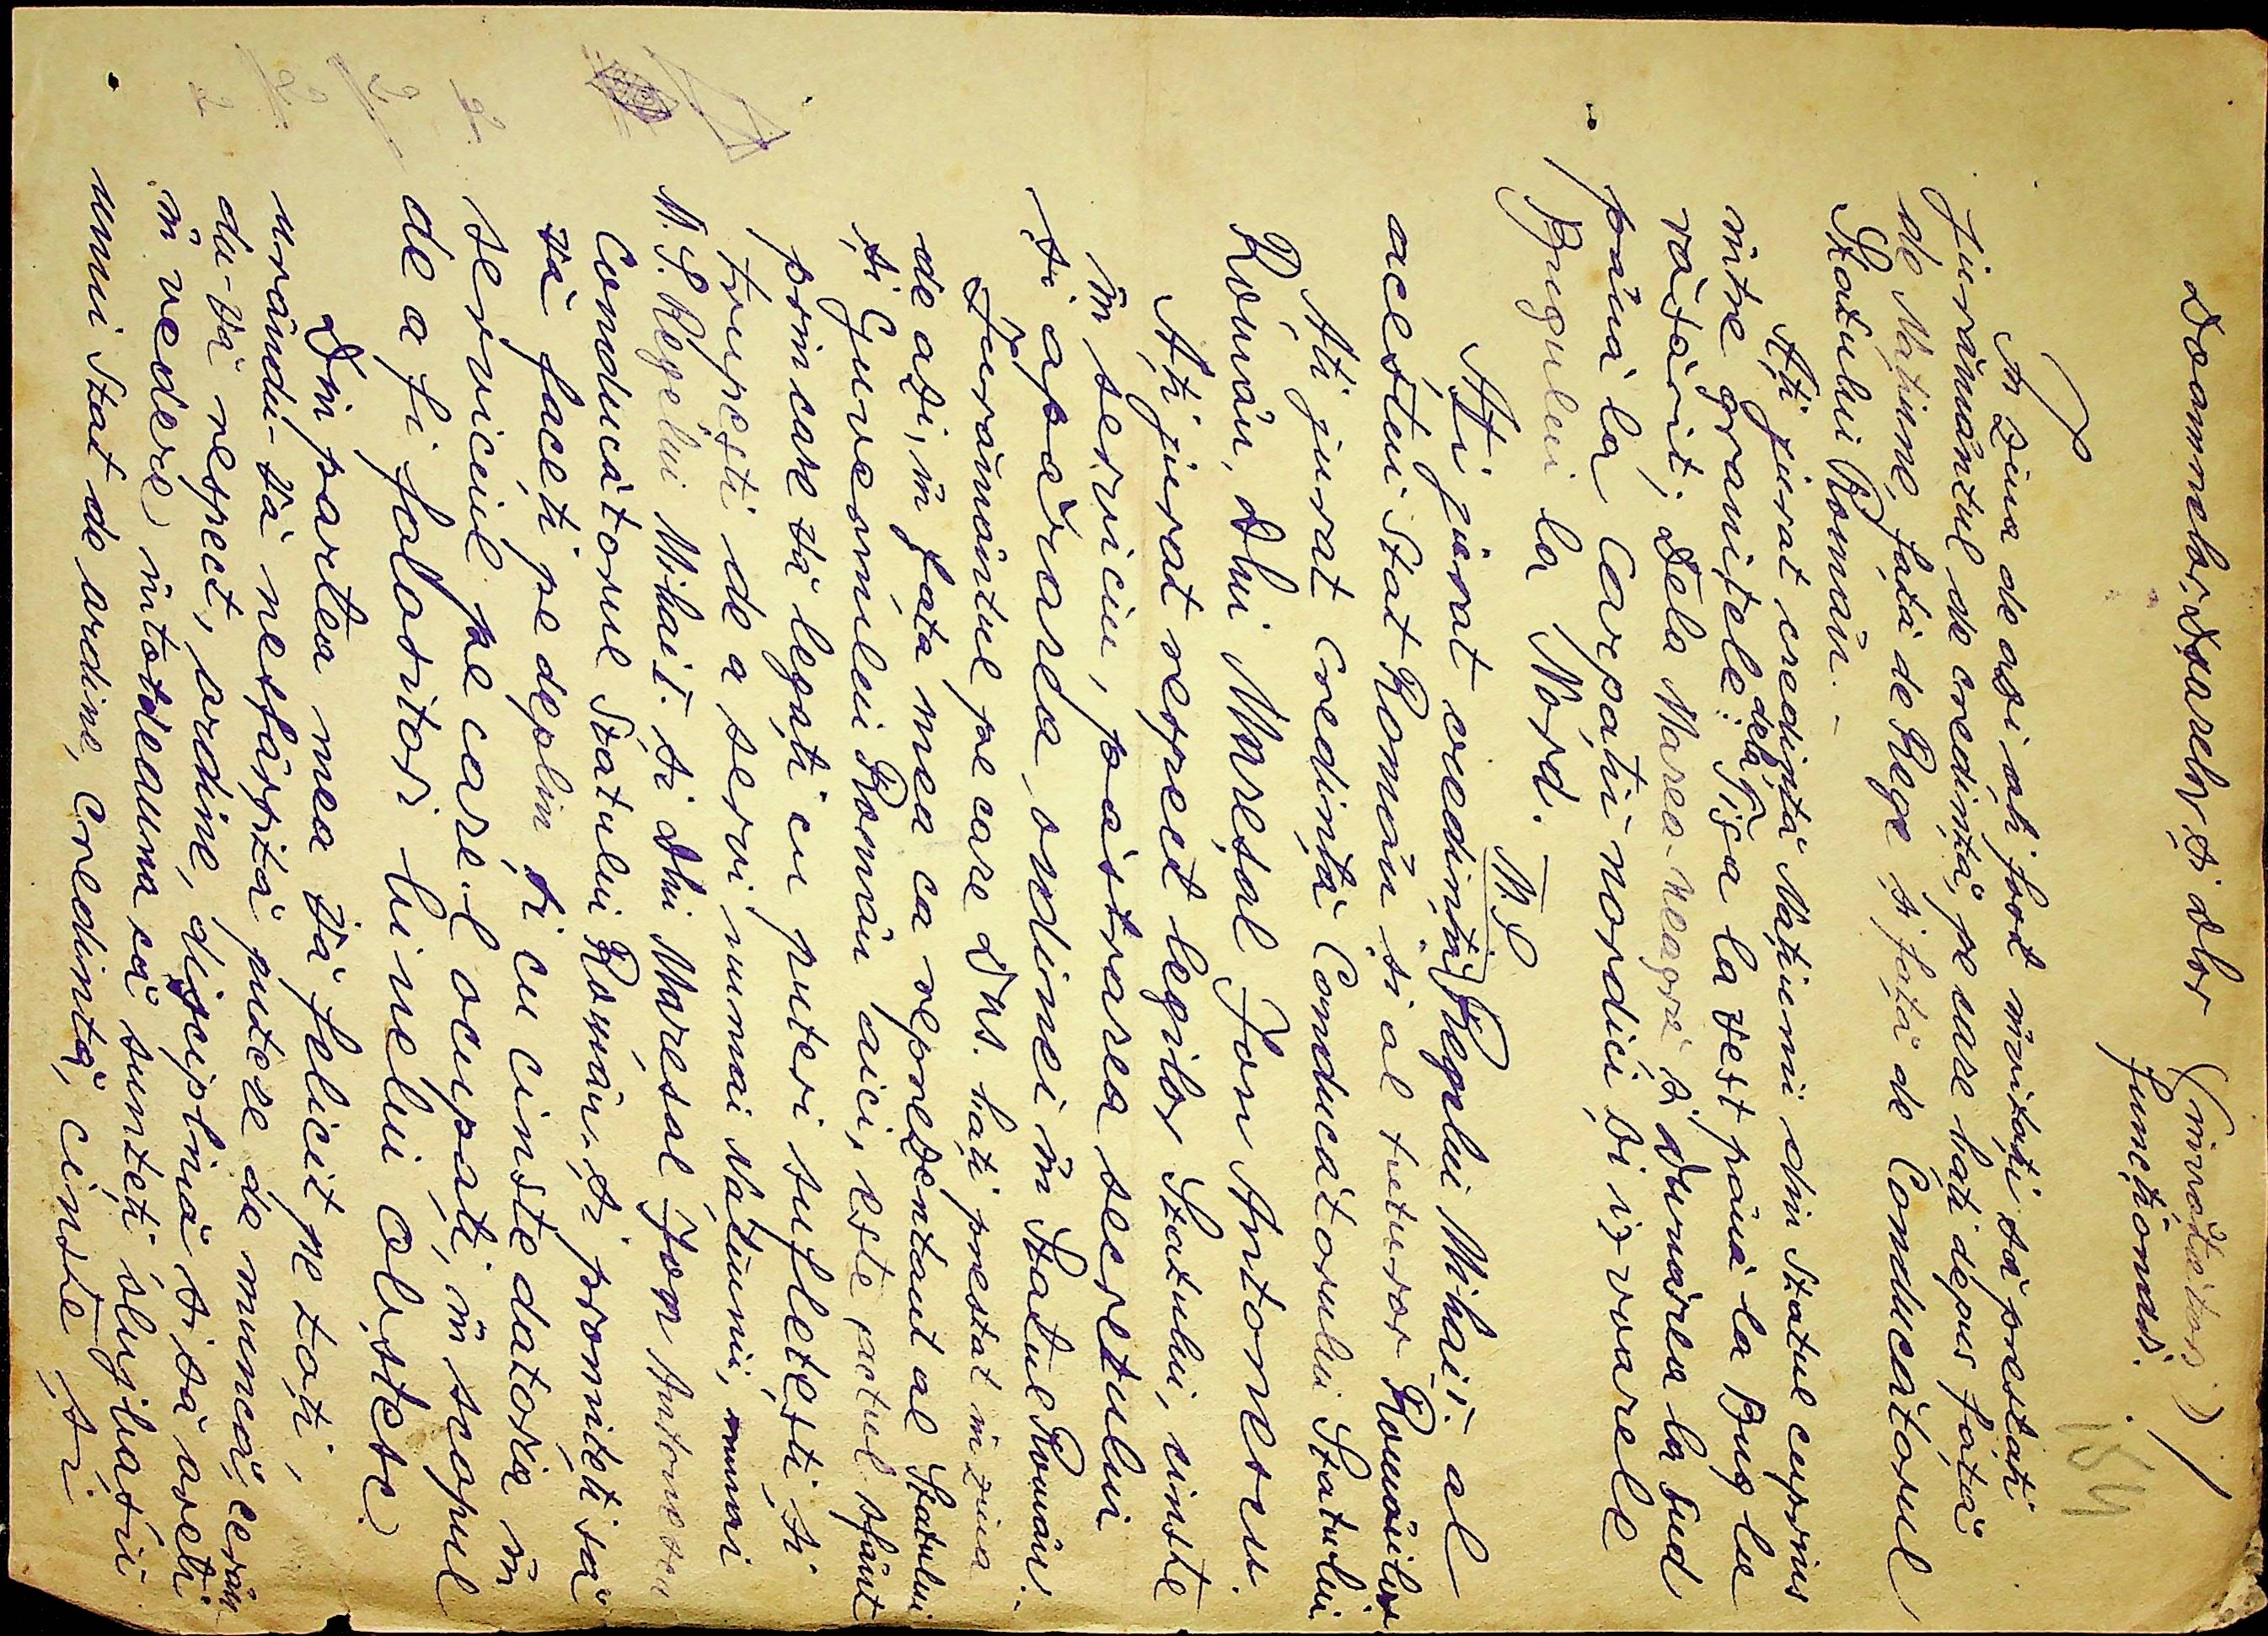 Doamnelor, Dșoarelor, și dlor (învățători)
funcționari.
154
În ziua de azi ați fost invitați să prestați
jurământul de credință, pe care l'ați depus față
de Națiune, față de Rege și față de Conducătorul
Statului Român. -
Ați jurat credință Națiunii din Statul cuprins
între granițele: dela Tisa la Vest până la Bug la
răsărit; Dela Marea-Neagră și Dunărea la Sud
până la Carpații nordici, și izvoarele
Bugului la Nord.
M.S.
Ați jurat credință Regelui Mihai I. al
acestui Stat Român și al tuturor Românilor
Ați jurat credință Conducătorului Statului
Român, Dlui Mareșal Ion Antonescu.
Ați jurat respect legilor Statului, cinste
în serviciu, păstrarea secretului
și apărarea ordinei în Statul Român.
Jurământul pe care Dvs. l'ați prestat în ziua
de azi, în fața mea ca reprezentant al Statului
și Guvernului Român aici, este actul sfânt
prin care vă legați cu puteri sufletești și
trupești de a servi numai Națiunii, numai
M. S. Regelui Mihai I. și dlui Mareșal Ion Antonescu
Conducătorul Statului Român, și promiteți să
vă faceți pe deplin și cu cinste datoria în
serviciul pe care-l ocupați, în scopul
de a fi folositori binelui obștesc.
Din partea mea vă felicit pe toți,
urându-vă nesfârșită putere de muncă, cerân
du-vă respect, ordine, disciplină și să aveți
în vedere întotdeauna că sunteți slujbașii
unui Stat de ordine, credință, cinste și
2
2
2
2